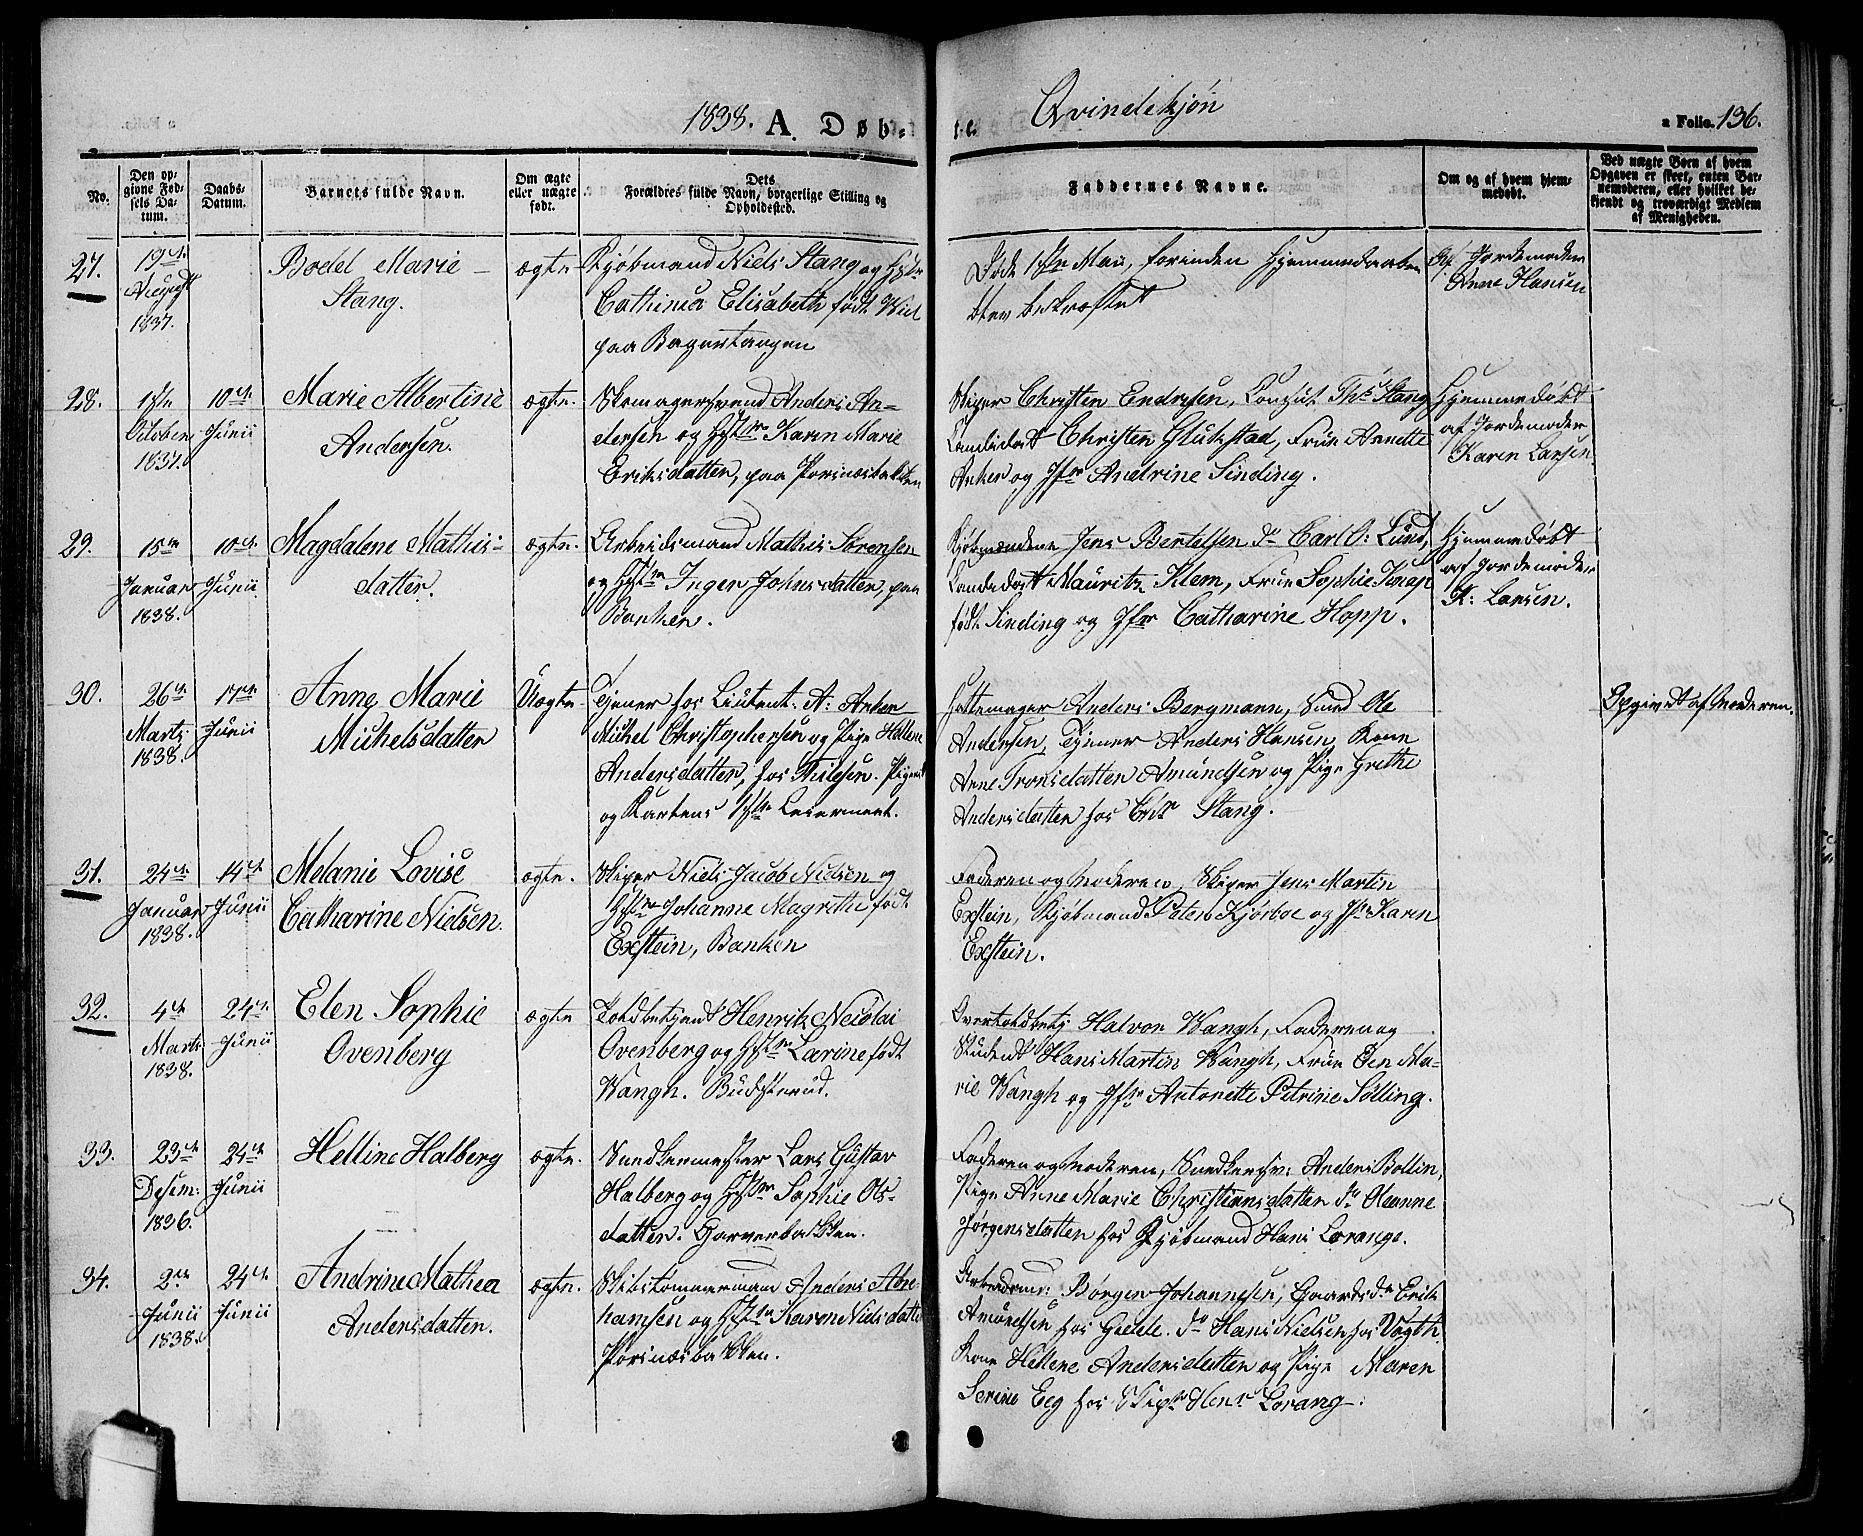 1838. A. Døb-
te. Qvindekjön
a Folio. 136.
No.
Den op-
givne Fød-
sels Da-
tum.
Daabs-
Datum.
Barnets fulde Navn.
Om ægte
eller uægte
født.
Forældres fulde Navn, borgerlige Stilling og
Opholdssted.
Faddernes Navne.
Om og af hvem hjem-
medøbt.
Ved uægte Børn af hvem
Opgaven er skeet, enten Bar-
nemoderen, eller hvilket be-
kjendt og troværdigt Medlem
af Menigheden.
27.
19de
August
1837.
Bodel Marie
Stang.
ægte
Kjøbmand Niels Stang og Hstr
Cathinca Elisabeth født
paa Bagertangen
Døde 1ste Mai, forinden Hjemmedaaben
blev bekræftet
Af Jordemoder
Anne Hansen
28.
October
1837.
10de
Junii
Marie Albertine
Andersen.
ægte.
Skomagersvend Anders An-
dersen og Hstr Karen Marie
Eriksdatter, paa Porsnæsbakken
Skiper Christen Endresen, Consul Ths Stang
Candidat Christen Glukstad, Frue Annette
Anker og Jfr Andrine Sinding.
Hjemmedøbt
af Jordemoder
Karen Larsen
29.
15de
Januar
1838.
10de
Junii
Magdalene Mathis-
datter.
ægte.
Arbeidsmand Mathis Sørensen
og Hstr Inger Johnsdatter, paa
Banken.
Kjøbmændene Jens Bertelsen do Carl O: Lund,
Candidat Mauritz Klem, Frue Sophie Knap
født Sinding og Jfr Catharine Hopp.
Hjemmedøbt
af Jordemoder
K: Larsen.
30.
26de
Marts
1838.
17de
Junii
Anne Marie
Michelsdatter
Uægte
Tjener hos Lieutent: A: Anker
Michel Christophersen og Pige Hellene
Andersdatter, hos Nilsen. Pigens
og Karlens 1ste Leiermaal.
Hattemager Anders Bergmann, Svend Ole
Andersen, Tjener Anders Hansen, Kone
Anne Tronsdatter Amundsen og Pige Grethe
Andersdatter hos Stang.
Opgivet af Moderen.
31.
24de
Januar
1838.
14de
Junii
Melanie Lovise
Catharine Nielsen.
ægte.
Skiper Niels Jacob Nielsen og
Hstr Johanne Magrethe født
Exstein, Banken
Faderen og Moderen, Skiper Jens Martin
Exstein, Kjøbmand Peter Kjørboe og Jfr Karen
Exstein.
32.
4de
Marts
1838.
24de
Junii
Elen Sophie
Ovenberg
ægte
Toldbetjent Henrik Nicolai
Ovenberg og Hstr Lovrine født
Wangh. Budsterud.
Overtoldbetj Halvor Wangh, Faderen og
Student Hans Martin Wangh, Frue Elen Ma-
rie Wangh og Jfr Antonette Petrine Sølling.
33.
23de
Desem:
1836.
24de
Junii
Helline Halberg
ægte.
Snedkermester Lars Gustav
Halberg og Hstr Sophie Ols-
datter. Garverbakken.
Faderen og Moderen, Snedkersv: Anders Bollin,
Pige Anne Marie Christiansdatter do Oleanne
Jørgensdatter hos Kjøbmand Hans Lorange.
34.
2den
Junii
1838.
24de
Junii
Andrine Mathea
Andersdatter.
ægte.
Skibstømmermand Anders Abra-
hamsen og Hstr Karen Nielsdatter
Porsnæsbakken.
Arbeidsmd: Børgen Johannesen, Gaardsdr Erik
Amundsen hos Gjedde. do Hans Nielsen hos Vogth
Kone Hellene Andersdatter og Pige Maren
Serine Eeg hos Skipr Henr Lorang.